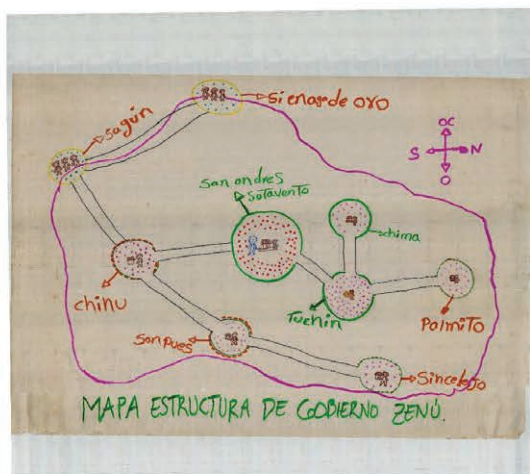 Sienas de oro
Sagún
OC
S
N
O
San andres
Sotavento
chima
chinu
Tuchin
Palmito
Sanpues
Sincelejo
MAPA ESTRUCTURA DE GOBIERNO ZENÚ.